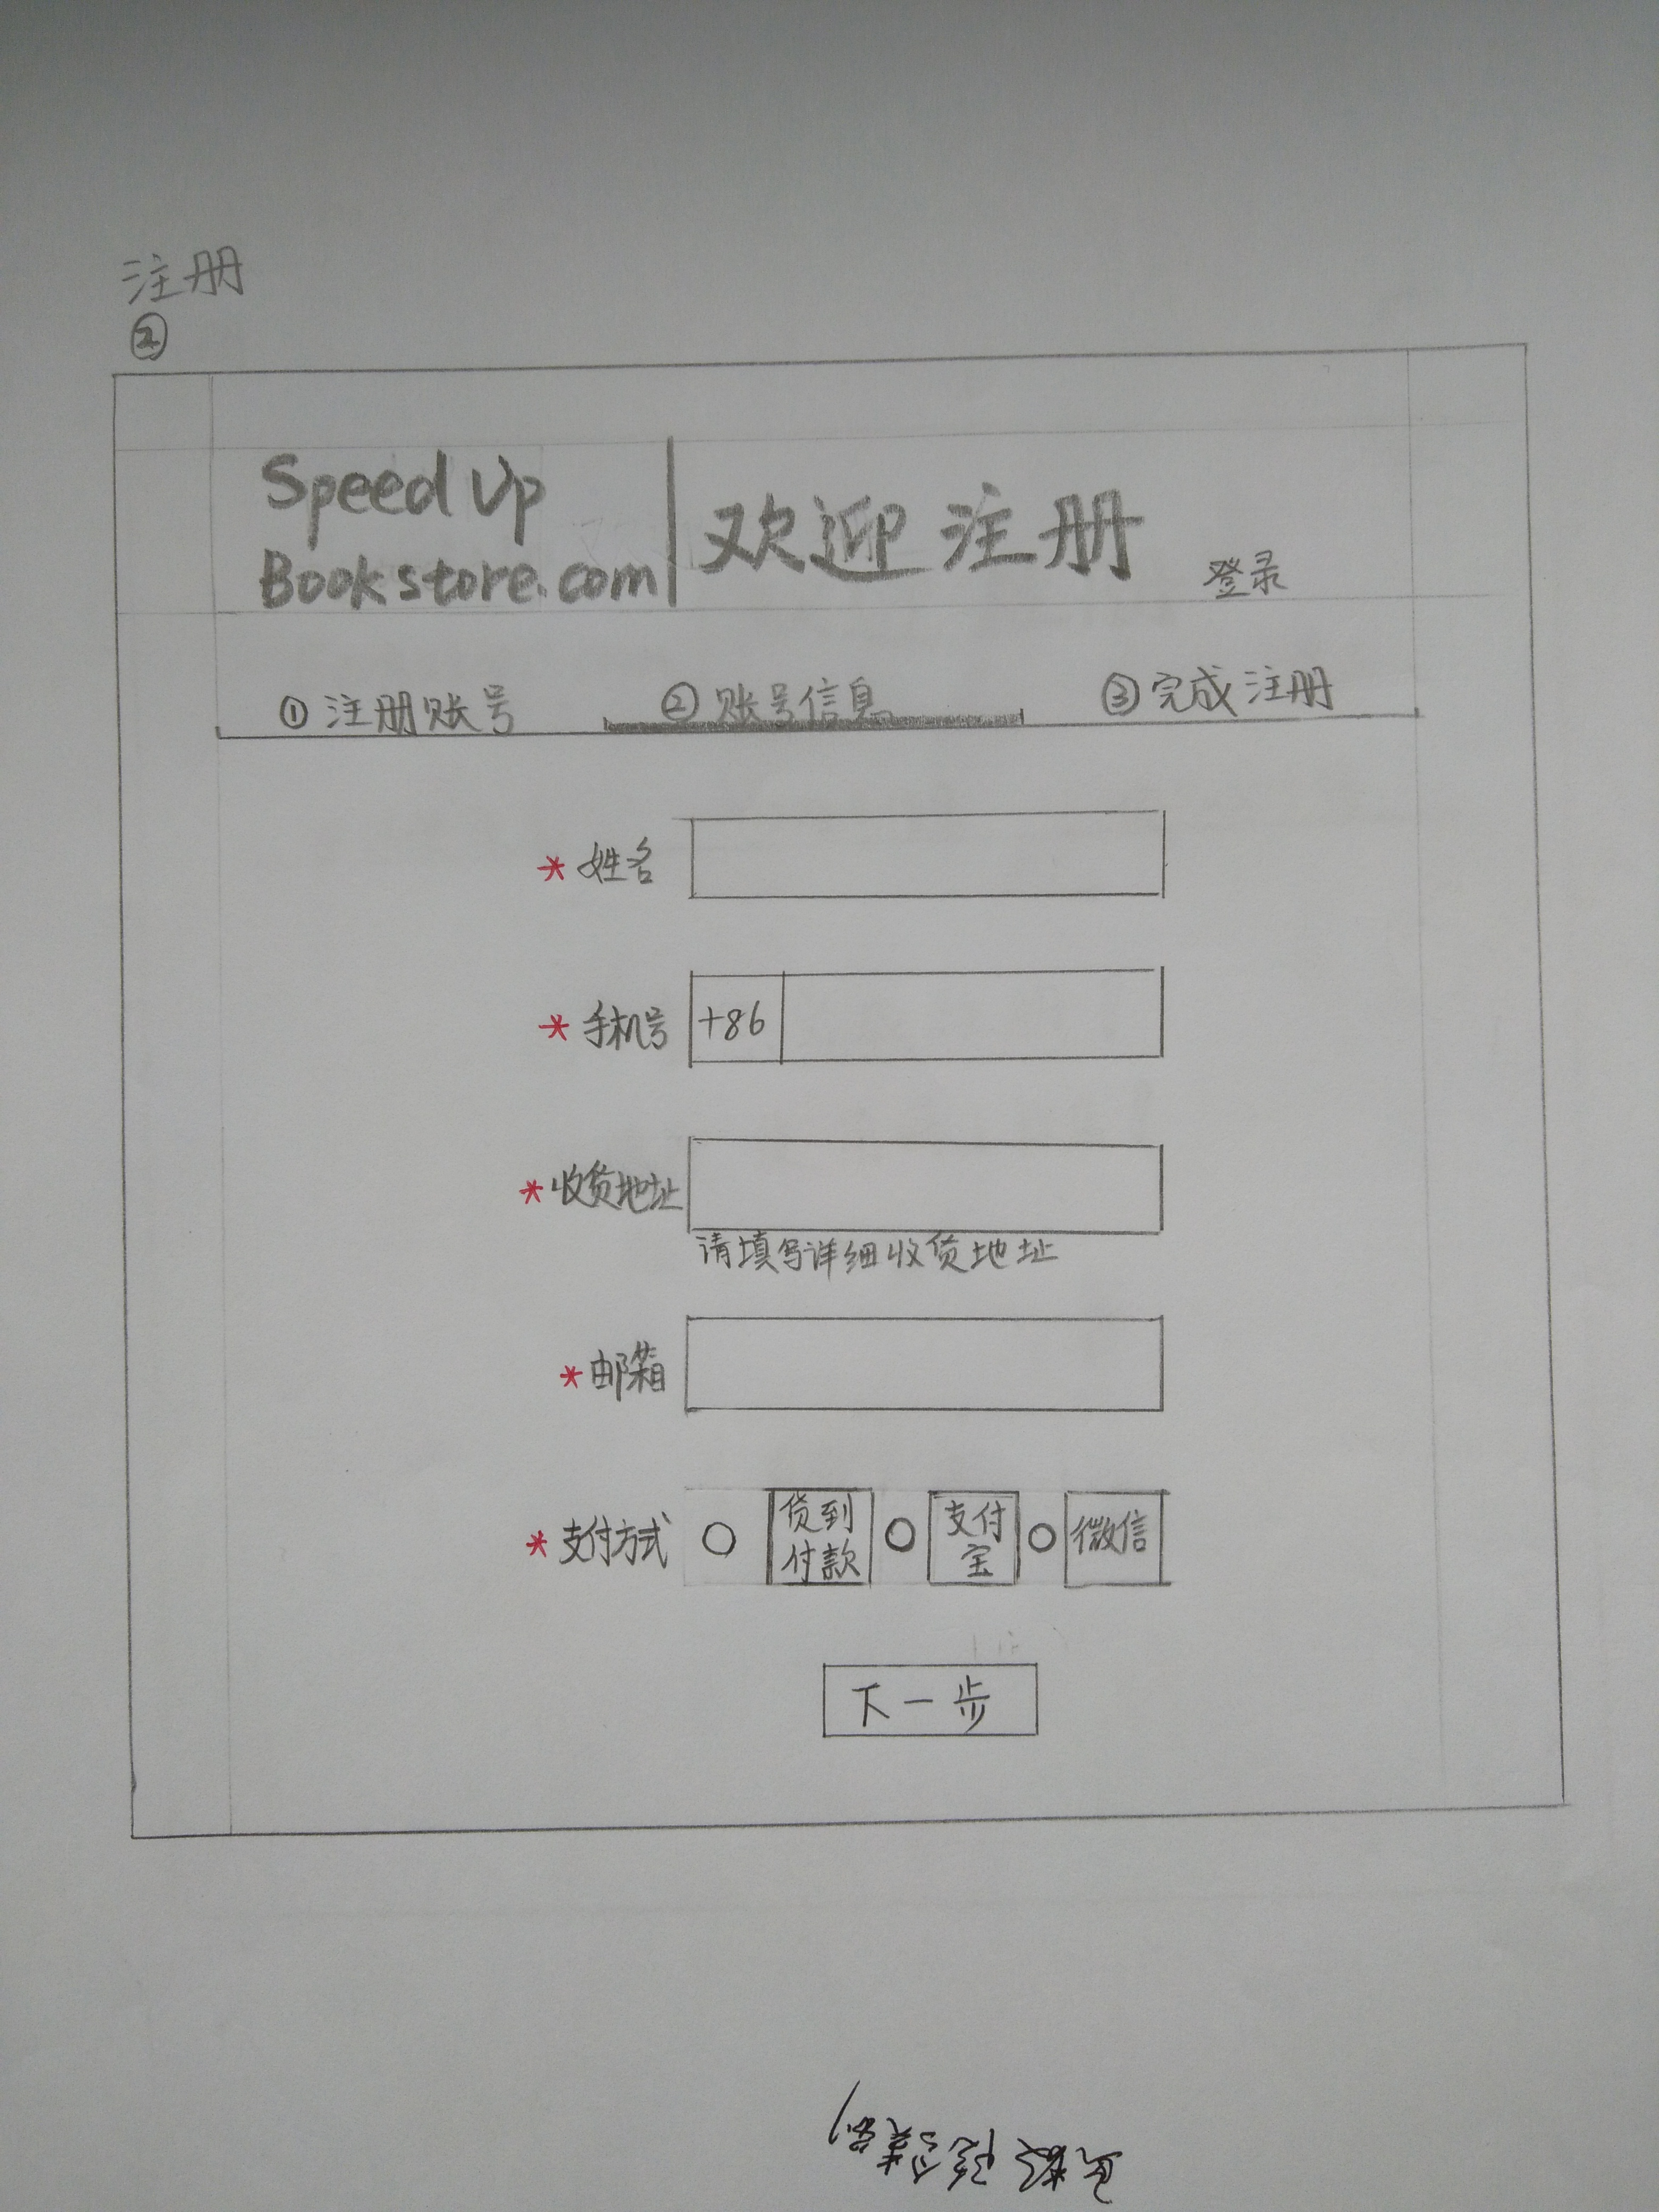 注册
②
Speed Up
Bookstore.com
欢迎注册
登录
① 注册账号 ② 账号信息 ③ 完成注册
* 姓名
* 手机号 +86
* 收货地址
请填写详细收货地址
* 邮箱
* 支付方式 ○ 货到付款 ○ 支付宝 ○ 微信
下一步